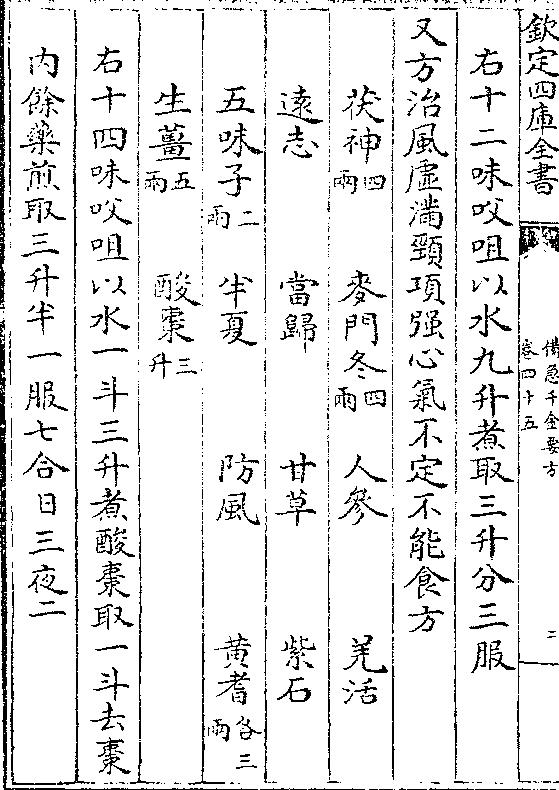 欽定四庫全書
備急千金要方
卷四十五
二
右十二味㕮咀以水九升煮取三升分三服
又方治風虛滿頸項强心氣不定不能食方
茯神四兩 麥門冬四兩 人參 羌活
遠志 當歸 甘草 紫石
五味子二兩 半夏 防風 黄耆各三兩
生薑五兩 酸棗三升
右十四味㕮咀以水一斗三升煮酸棗取一斗去棗
内餘藥煎取三升半一服七合日三夜二